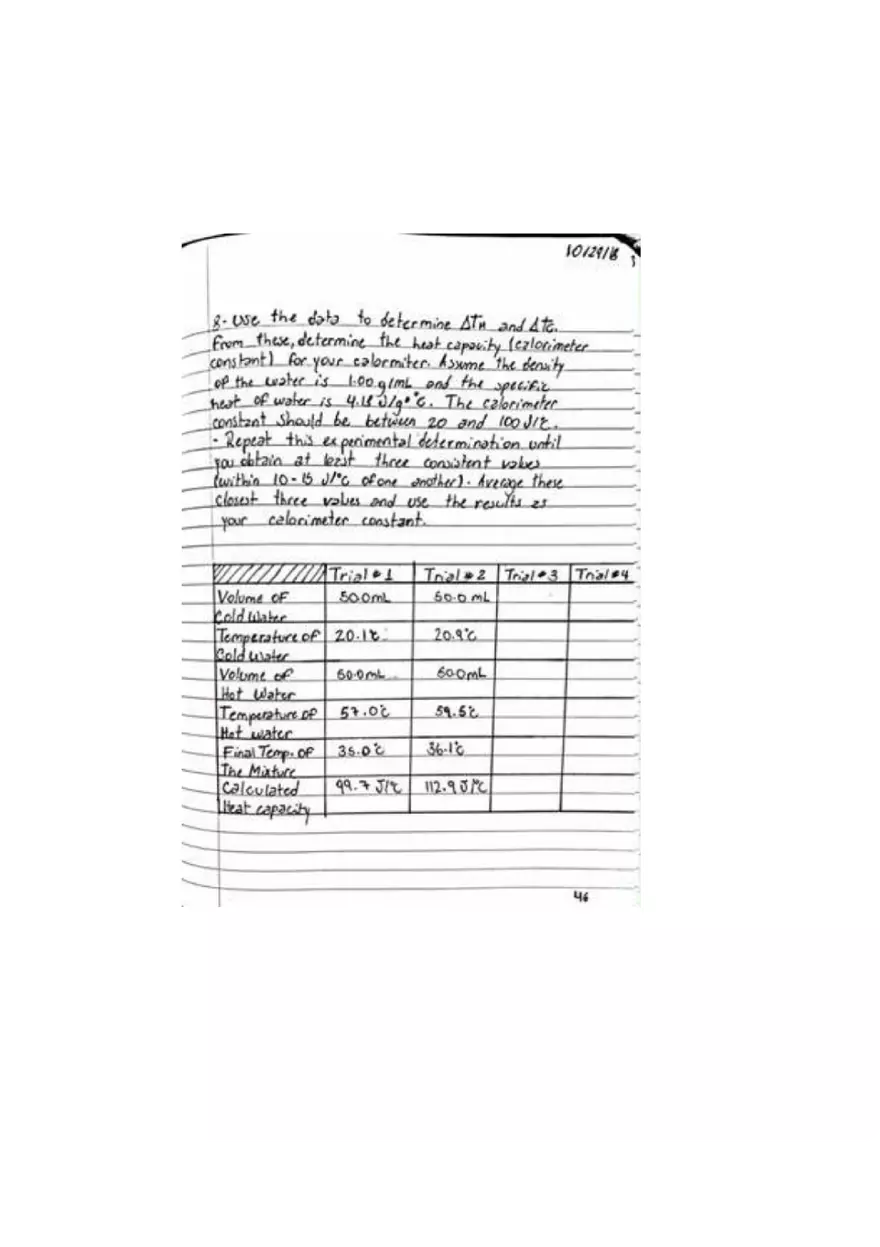 10/29/18
8- Use the data to determine ΔTH and ΔTc.
From these, determine the heat capacity (calorimeter
constant) for your calormiter. Assume the density
of the water is 1.00 g/mL and the specific
heat of water is 4.18 J/g•°C. The calorimeter
constant should be between 20 and 100 J/°C.
- Repeat this experimental determination until
you obtain at least three consistent values
(within 10-15 J/°C of one another). Average these
closest three values and use the results as
your calorimeter constant.
Trial #1 Trial #2 Trial #3 Trial #4
Volume of Cold Water 50.0mL 50.0 mL
Temperature of Cold Water 20.1°C 20.9°C
Volume of Hot Water 50.0mL 50.0mL
Temperature of Hot Water 57.0°C 59.5°C
Final Temp. of The Mixture 35.0°C 36.1°C
Calculated Heat capacity 99.7 J/°C 112.9 J/°C
46